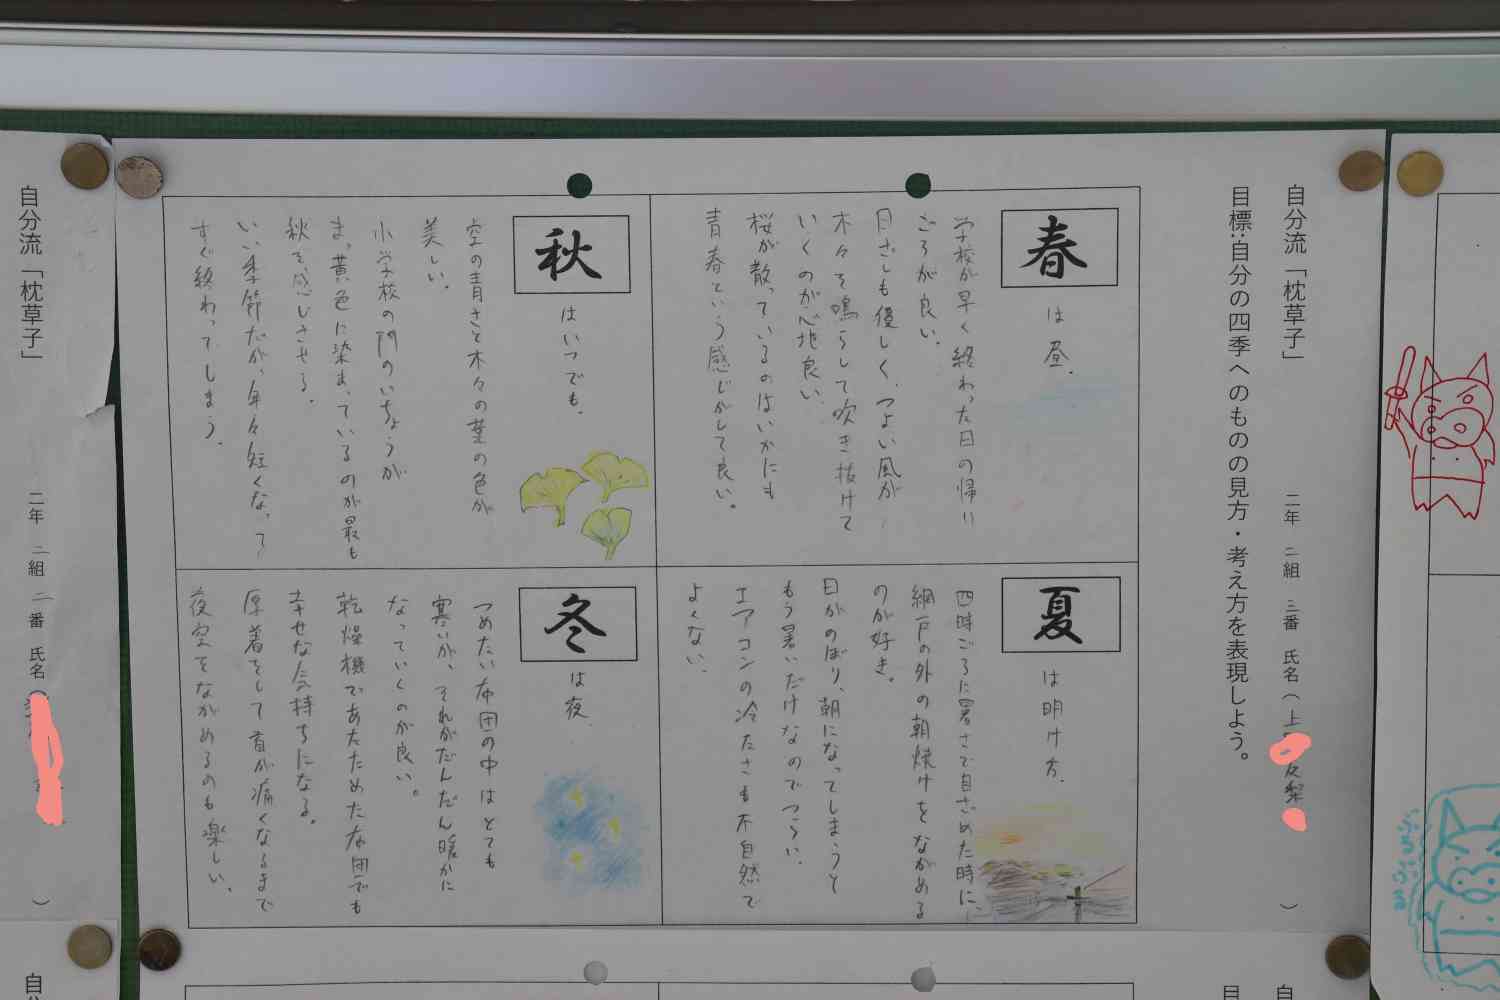 自分流「枕草子」
二年 二組 三番 氏名(上
友梨
)
目標:自分の四季へのものの見方・考え方を表現しよう。
春
は昼、
学校が早く終わった日の帰り
ごろが良い、
日ざしも優しく、つよい風が
木々を鳴らして吹き抜けて
いくのが心地良い、
桜が散っているのはいかにも
青春という感じがして良い。
夏
は明け方、
四時ごろに暑さで目ざめた時に、
網戸の外の朝焼けをながめる
のが好き。
日がのぼり、朝になってしまうと
もう暑いだけなのでつらい、
エアコンの冷たさも不自然で
よくない、
秋
はいつでも、
空の青さと木々の葉の色が
美しい、
小学校の門のいちょうが
まっ黄色に染まっているのが最も
秋を感じさせる、
いい季節だが、年々短くなって
すぐ終わってしまう、
冬
は夜、
つめたい布団の中はとても
寒いが、それがだんだん暖かに
なっていくのが良い。
乾燥機であたためた布団でも
幸せな気持ちになる。
厚着をして首が痛くなるまで
夜空をながめるのも楽しい、
自分流「枕草子」
二年 二組 二番 氏名(
)
ぶるぶる
自
目
自分